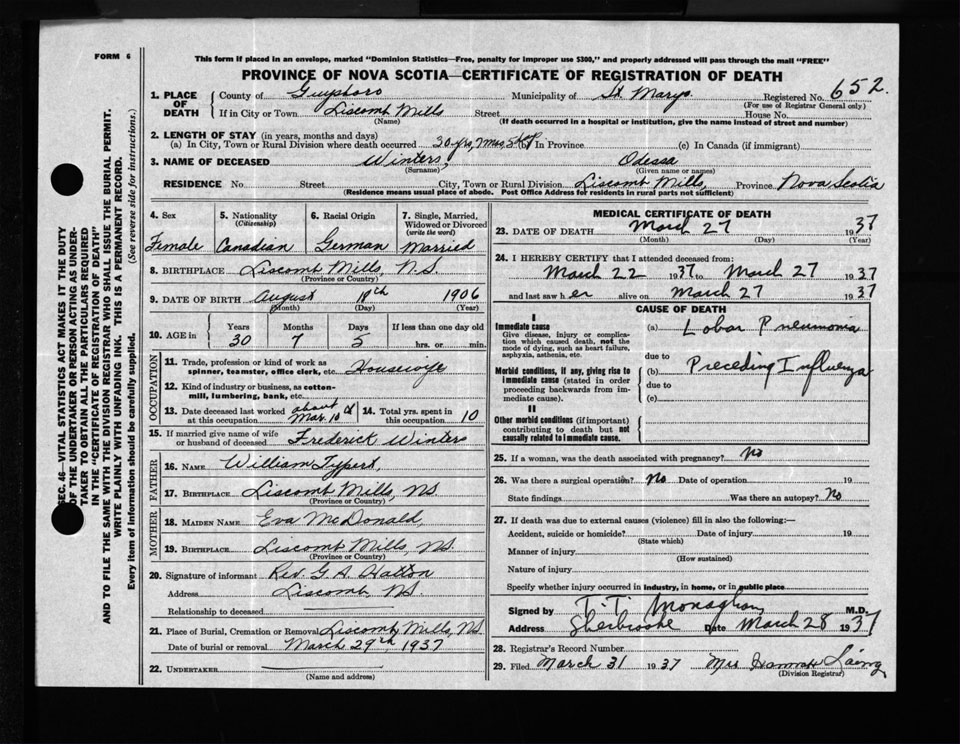 FORM 6
This form if placed in an envelope, marked "Dominion Statistics—Free, penalty for improper use $300," and properly addressed will pass through the mail "FREE"
PROVINCE OF NOVA SCOTIA—CERTIFICATE OF REGISTRATION OF DEATH
1. PLACE OF DEATH County of Guysboro Municipality of St. Marys. Registered No. 652.
(For use of Registrar General only)
If in City or Town Liscomb Mills Street House No.
(Name) (If death occurred in a hospital or institution, give the name instead of street and number)
2. LENGTH OF STAY (in years, months and days)
(a) In City, Town or Rural Division where death occurred 30 yrs, 7 mos, 5 (b) In Province (c) In Canada (if immigrant)
3. NAME OF DECEASED Winters, Odessa
(Surname) (Given name or names)
RESIDENCE No. Street City, Town or Rural Division Liscomb Mills, Province Nova Scotia
(Residence means usual place of abode. Post Office Address for residents in rural parts not sufficient)
4. Sex 5. Nationality (Citizenship) 6. Racial Origin 7. Single, Married, Widowed or Divorced (write the word)
Female Canadian German Married
8. BIRTHPLACE Liscomb Mills, N.S.
(Province or Country)
9. DATE OF BIRTH August 18th 1906
(Month) (Day) (Year)
10. AGE in Years Months Days If less than one day old
30 7 5 hrs. or min.
OCCUPATION
11. Trade, profession or kind of work as spinner, teamster, office clerk, etc. Housewife
12. Kind of industry or business, as cotton-mill, lumbering, bank, etc.
13. Date deceased last worked at this occupation about Mar. 14. Total yrs. spent in this occupation 10
15. If married give name of wife or husband of deceased Frederick Winters
FATHER
16. NAME William Typert,
17. BIRTHPLACE Liscomb Mills, NS
(Province or Country)
MOTHER
18. MAIDEN NAME Eva McDonald,
19. BIRTHPLACE Liscomb Mills, NS.
(Province or Country)
20. Signature of informant Rev. G. A. Hatton
Address Liscomb, NS.
Relationship to deceased
21. Place of Burial, Cremation or Removal Liscomb Mills, NS
Date of burial or removal March 29th, 1937
22. UNDERTAKER
(Name and address)
MEDICAL CERTIFICATE OF DEATH
23. DATE OF DEATH March 27 1937
(Month) (Day) (Year)
24. I HEREBY CERTIFY that I attended deceased from:
March 22 1937 to March 27 1937
and last saw her alive on March 27 1937
CAUSE OF DEATH
I
Immediate cause
Give disease, injury or complication which caused death, not the mode of dying, such as heart failure, asphyxia, asthenia, etc.
(a) Lobar Pneumonia
due to
Morbid conditions, if any, giving rise to immediate cause (stated in order proceeding backwards from immediate cause).
(b) Preceding Influenza
due to
(c)
II
Other morbid conditions (if important) contributing to death but not causally related to immediate cause.
25. If a woman, was the death associated with pregnancy? No
26. Was there a surgical operation? No Date of operation 19
State findings Was there an autopsy? No
27. If death was due to external causes (violence) fill in also the following:—
Accident, suicide or homicide? Date of injury 19
(State which)
Manner of injury
(How sustained)
Nature of injury
Specify whether injury occurred in industry, in home, or in public place
Signed by T. T. Monaghan M.D.
Address Sherbrooke Date March 28 1937
28. Registrar's Record Number
29. Filed March 31 1937 Mrs Hannah Laing
(Division Registrar)
SEC. 46—VITAL STATISTICS ACT MAKES IT THE DUTY
OF THE UNDERTAKER OR PERSON ACTING AS UNDER-
TAKER TO OBTAIN ALL THE PARTICULARS REQUIRED
IN THE "CERTIFICATE OF REGISTRATION OF DEATH"
AND TO FILE THE SAME WITH THE DIVISION REGISTRAR WHO SHALL ISSUE THE BURIAL PERMIT.
WRITE PLAINLY WITH UNFADING INK. THIS IS A PERMANENT RECORD.
Every item of information should be carefully supplied. (See reverse side for instructions.)